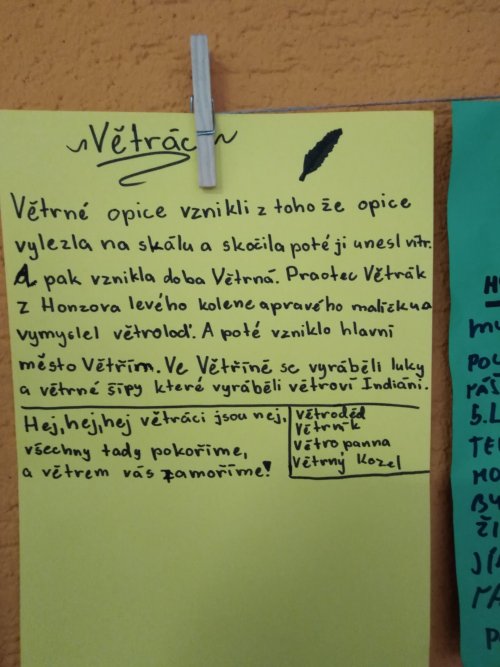 ~Větráci~
Větrné opice vznikli z toho že opice
vylezla na skálu a skočila poté ji unesl vítr.
A pak vznikla doba Větrná. Praotec Větrák
z Honzova levého kolene a pravého malíčku
vymyslel větroloď. A poté vzniklo hlavní
město Větřím. Ve Větříně se vyráběli luky
a větrné šípy které vyráběli větroví Indiáni.
Hej, hej, hej větráci jsou nej,
všechny tady pokoříme,
a větrem vás zamoříme!
Větroděd
Větrník
Větropanna
Větrný kozel